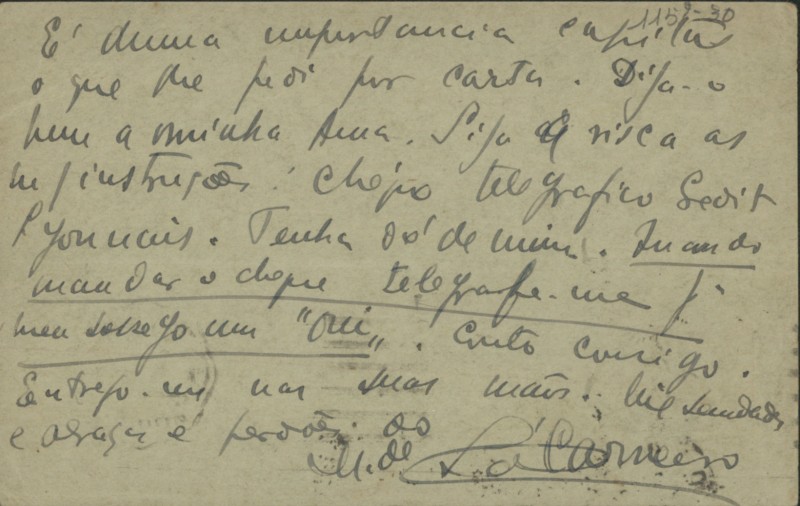 1159-30
É duma importancia capital
o que lhe pedi por carta. Diga-o
bem a minha Ama. Siga á risca as
m/ instruções: chéque telegrafico Credit
Lyonnais. Tenha dó de mim. Quando
mandar o cheque telegrafe-me p.ª
meu sossego um "Oui". Conto consigo.
Entrego-me nas suas mãos. Mil saudades
e abraços e perdões do
M. de Sá-Carneiro